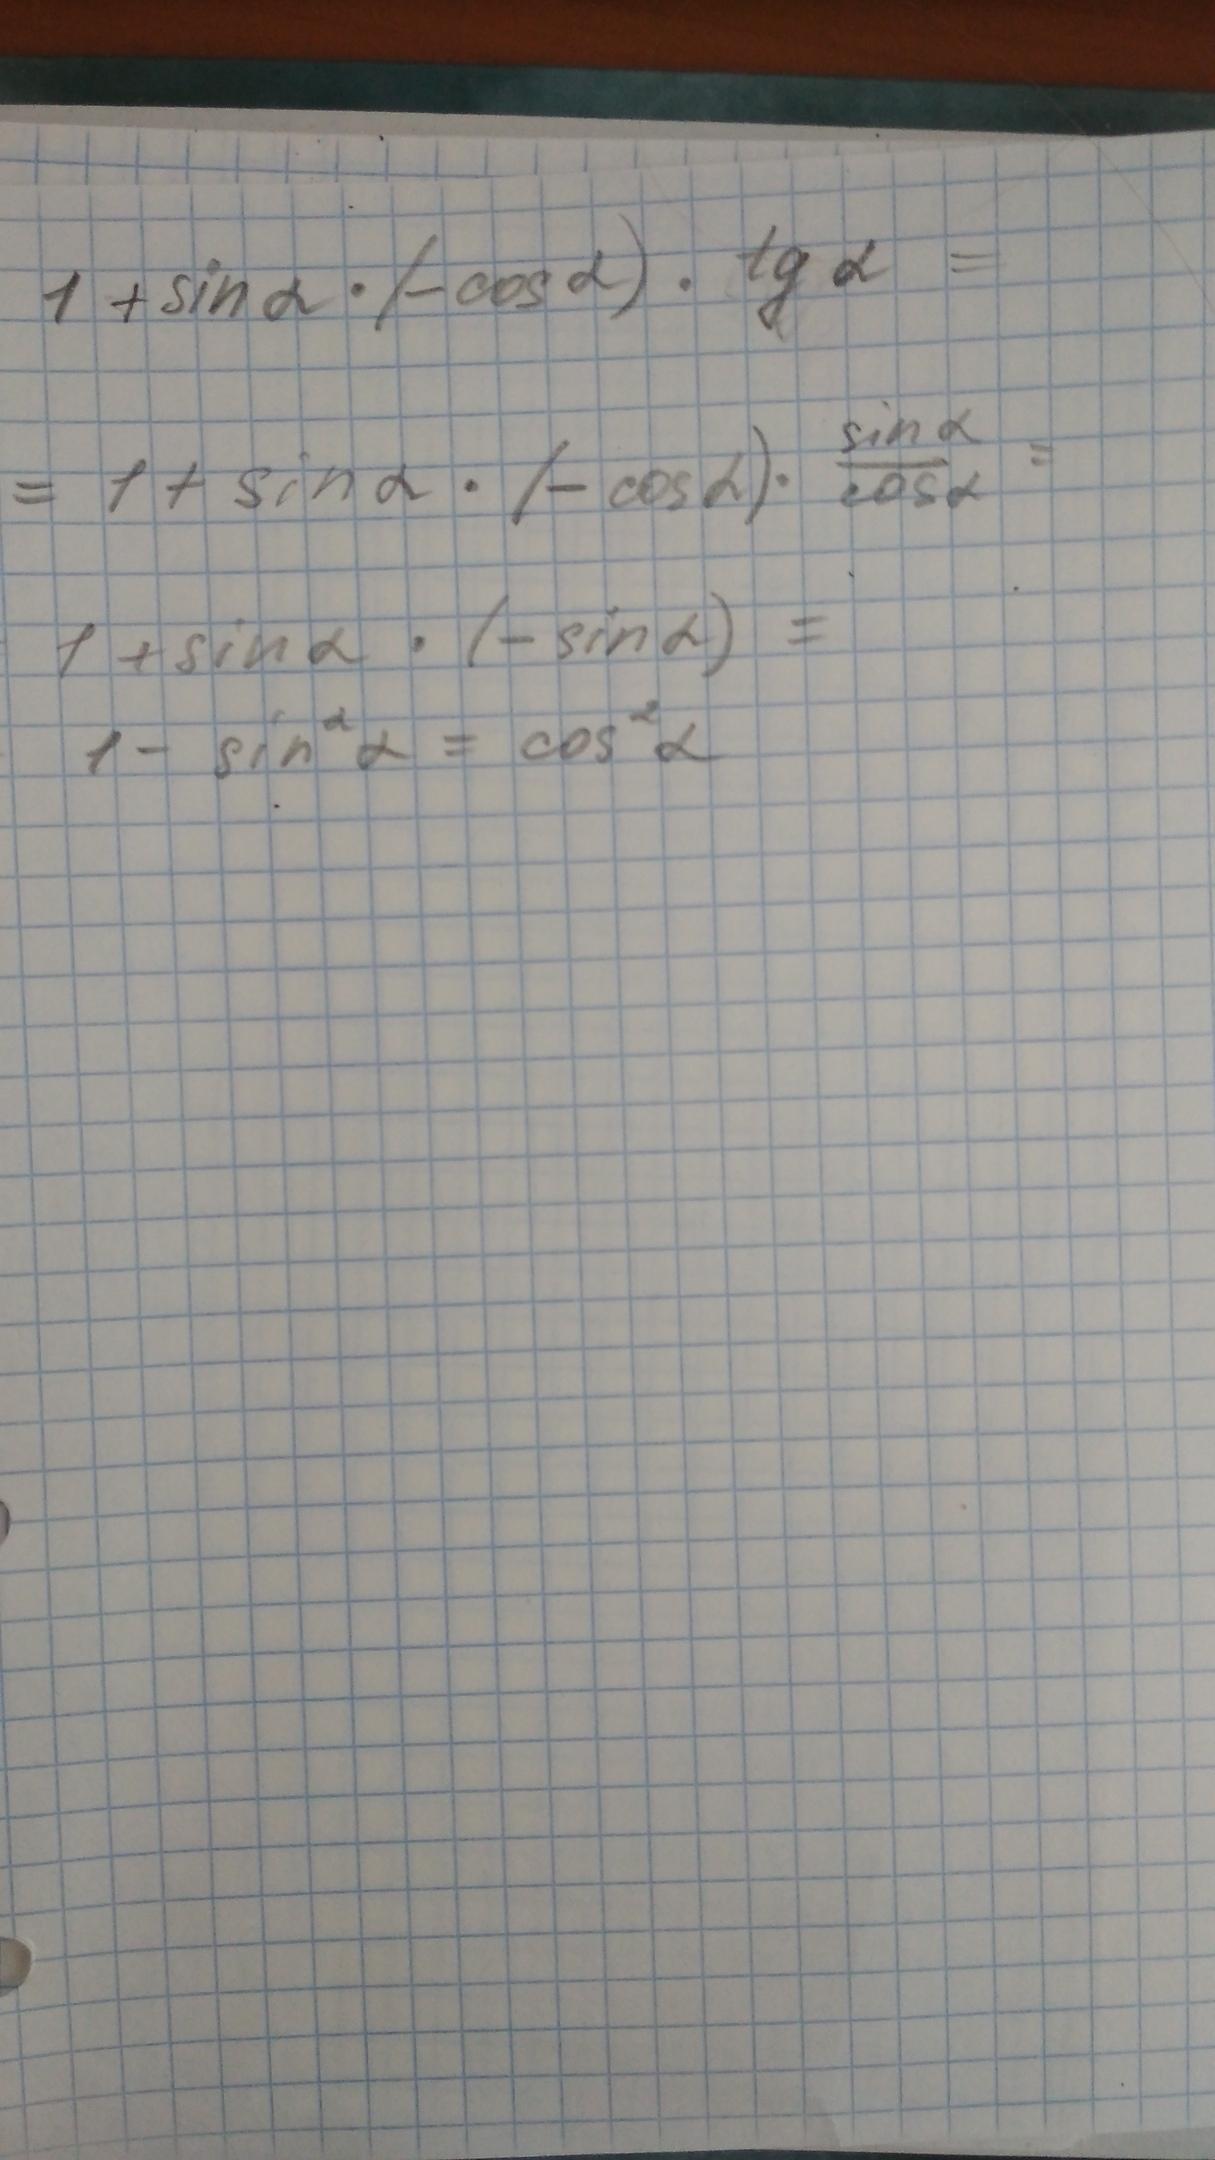 1 + sin α · (- cos α) · tg α =
= 1 + sin α · (- cos α) · sin α / cos α =
1 + sin α · (- sin α) =
1 - sin² α = cos² α